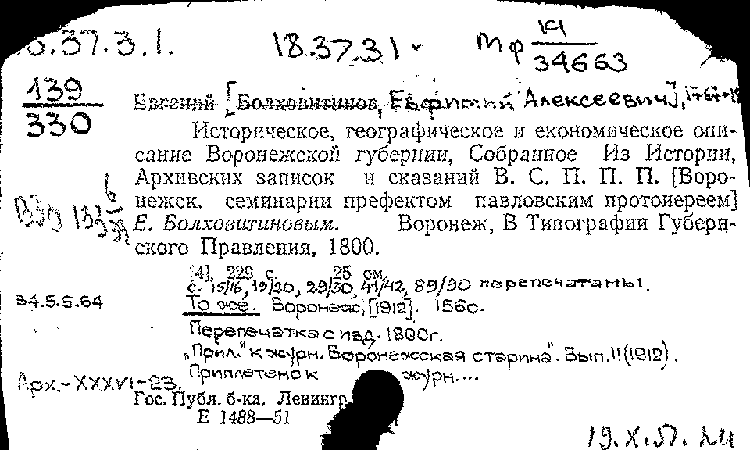 18.37.3.1.
18.37.3.1
Мф К1/34663
139/330
Евгений [Болховитинов, Евфимий Алексеевич],
Историческое, географическое и економическое опи-
сание Воронежской губернии, Собранное Из Истории,
Архивских записок и сказаний В. С. П. П. П. [Воро-
нежск. семинарии префектом павловским протоиереем]
Е. Болховитиновым. Воронеж, В Типографии Губерн-
ского Правления, 1800.
[4], 229 с. 25 см.
с. 15/16, 19/20, 29/30, 41/42, 89/90 перепечатаны.
В4.5.5.64
То же. Воронеж, [1912]. 156с.
Перепечатка с изд. 1800г.
„Прил." к журн. Воронежская старина". Вып. 11 (1912).
Арх.-XXXVI-23.
Приплетено к журн....
Гос. Публ. б-ка. Ленингр
Е 1488—51
19.X.51.